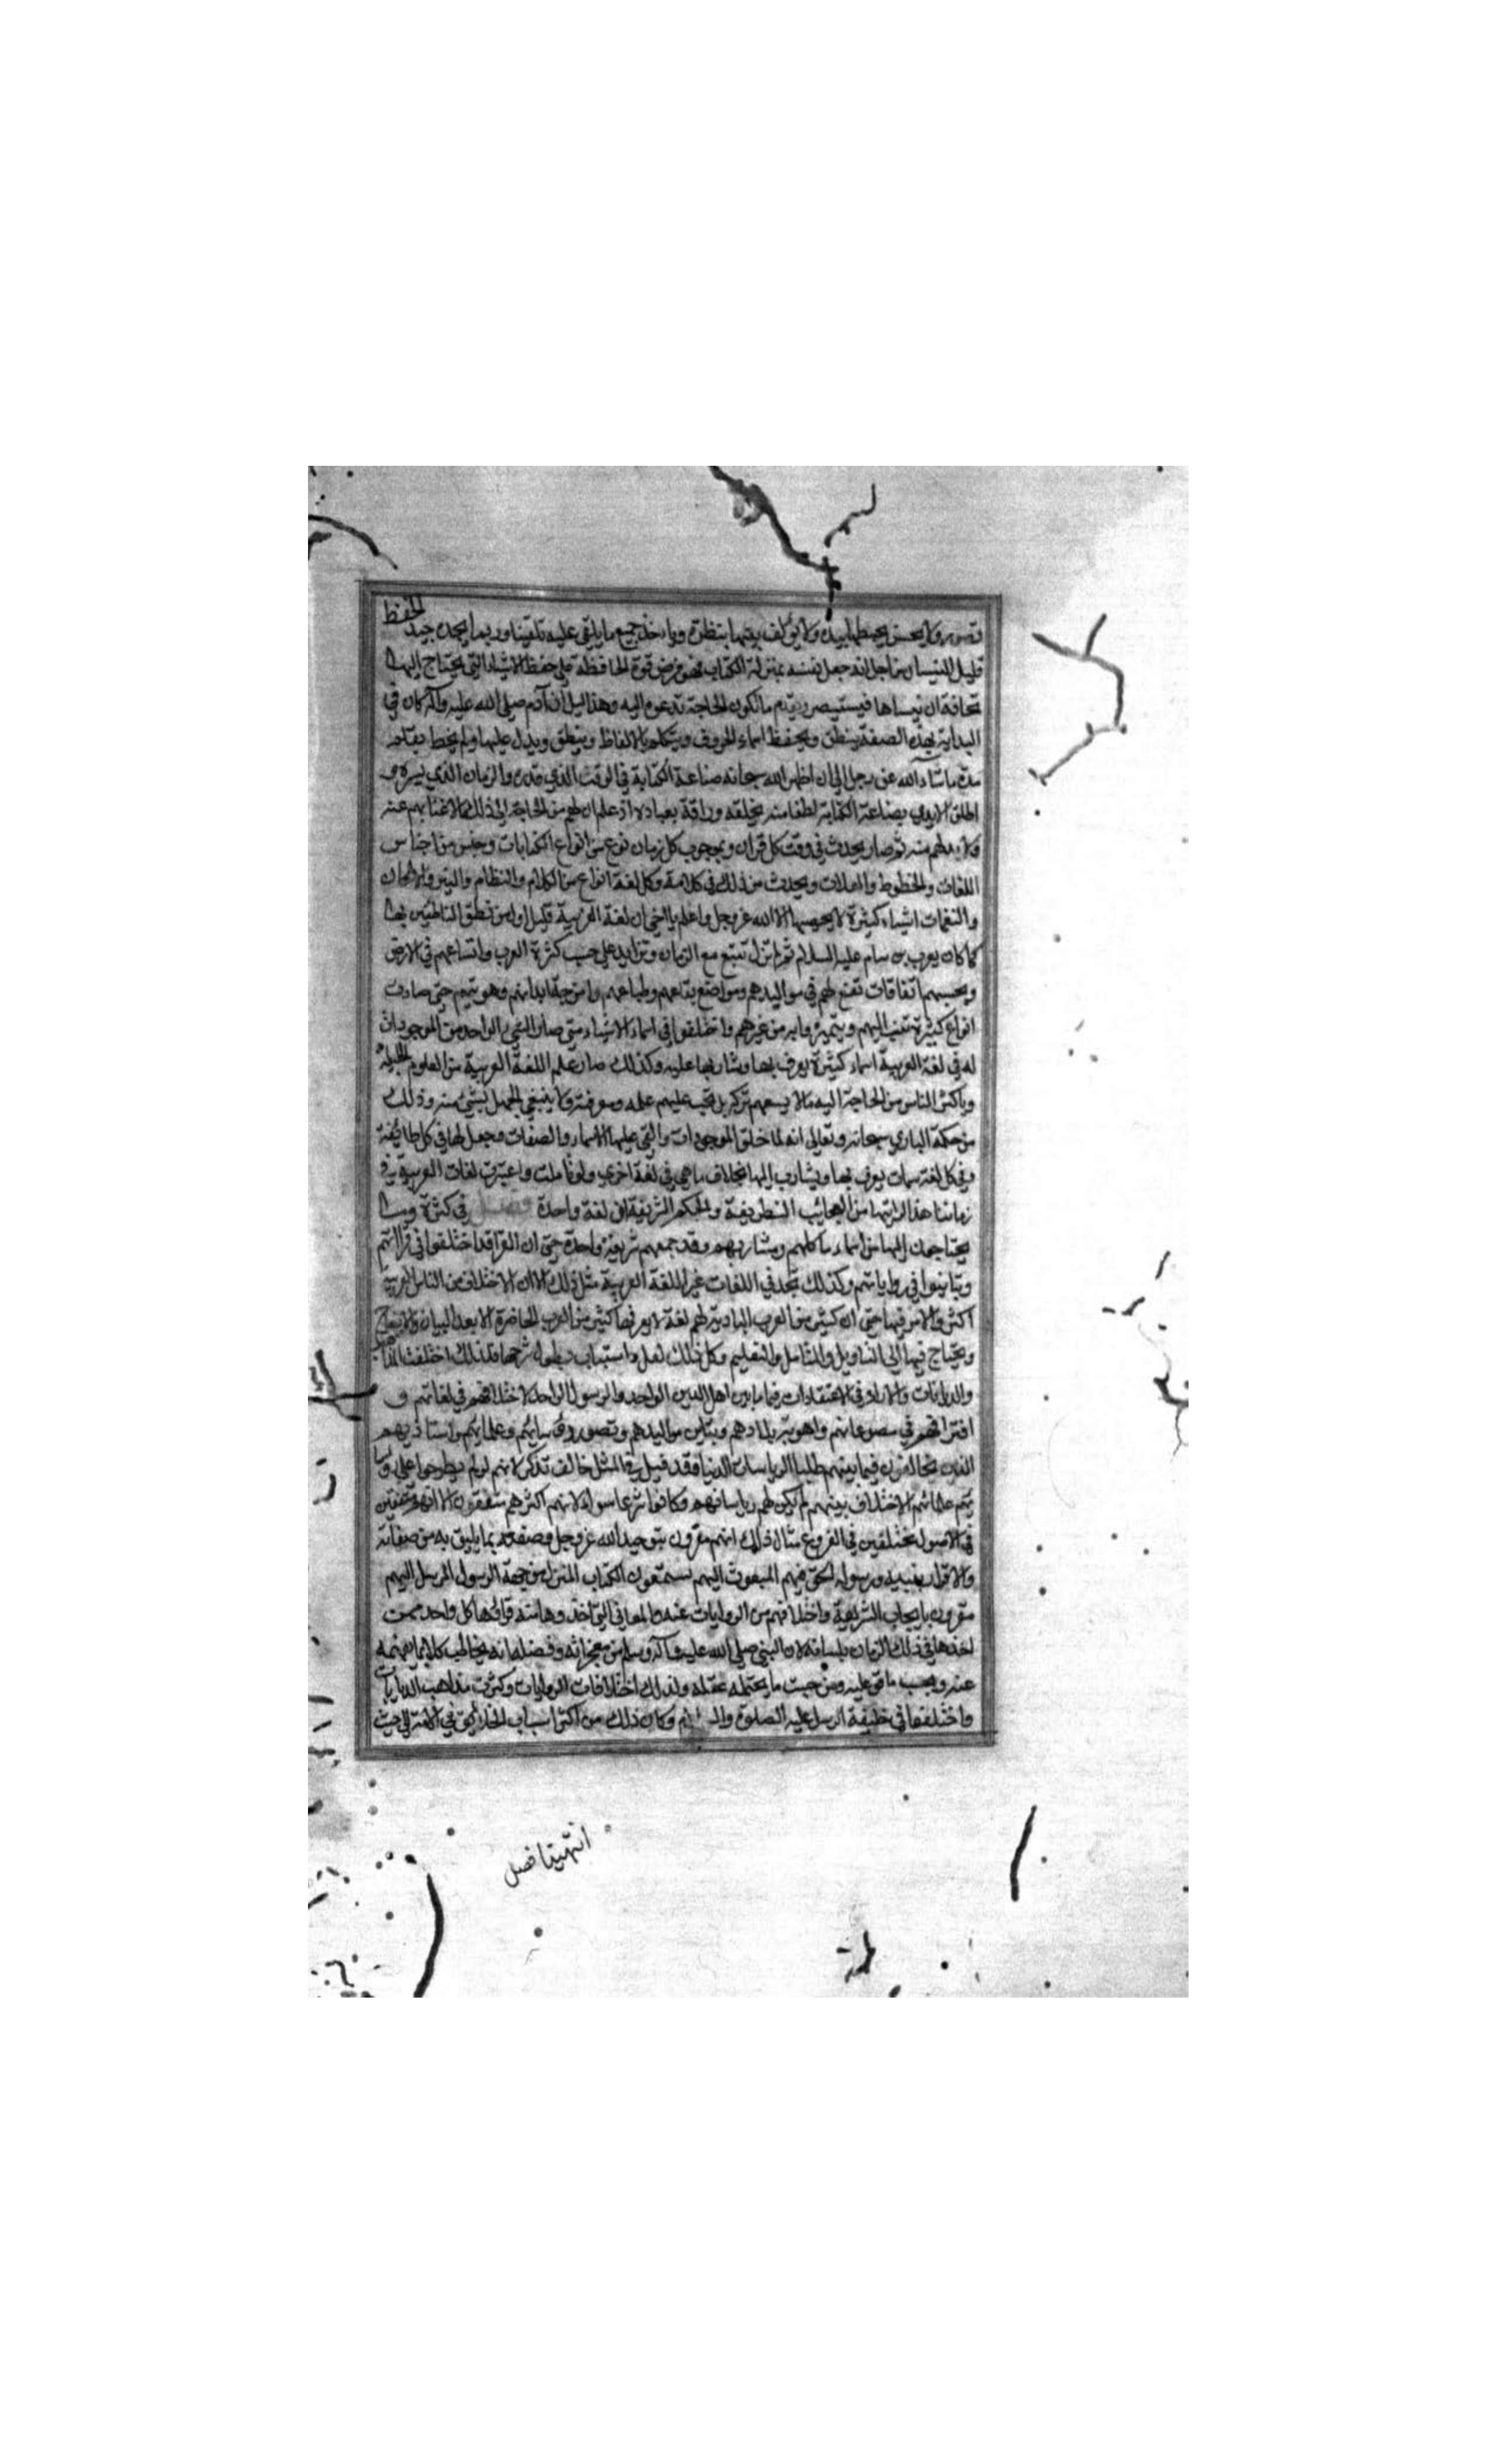 ولا يحسن يخطها بيده ولا يؤلف بينها بنظره وياخذ جميع ما يلقى عليه تلقينا وربما يجده جيد الحفظ
قليل النسيان من اجل انه جعل نفسه بمنزلة الكتاب فهو فرض قوة الحافظة على حفظ الاشياء التي يحتاج اليها
مخافة ان ينساها فيستبصر ويقدم ما تكون الحاجة تدعوه اليه وهذا دليل ان آدم صلى الله عليه وآله كان في
البداية بهذه الصفة ينطق ويحفظ اسماء الحروف ويتكلم بالالفاظ وينطق ويدل عليها ولم يخط بقلم
مدة ما شاء الله عز وجل الى ان اظهر الله سبحانه صناعة الكتابة في الوقت الذي قدره والزمان الذي يسره و
اطلق الايدي بصناعة الكتابة لطفا منه بخلقه ورافة بعباده اذ علم ان لهم من الحاجة الى ذلك ما لا غنا بهم عنه
ولا بد لهم منه ثم صار يحدث في وقت كل قران وبموجب كل زمان نوع من انواع الكتابات وجنس من اجناس
اللغات والخطوط ويحدث من ذلك في كل امة وكل لغة انواع من الكلام والنظام والنثر والالحان
والنغمات اشياء كثيرة لا يحصيها الا الله عز وجل واعلم يا اخي ان لغة العربية قليل اول من نطق الناطقين بها
كما كان يعرب بن سام عليه السلام ثم لم تزل تتسع مع الزمان وتزايد على حسب كثرة العرب واتساعهم في الارض
وبحسبهم اتفاقات تقع لهم في مواليدهم ومواضع بقاعهم وطباعهم وامزجة ابدانهم وهويتهم حتى صارت
انواع كثيرة تنسب اليهم ويتميزوا به من غيرهم واختلفوا في اسماء الاشياء حتى صار الشيء الواحد من الموجودات
له في لغة العربية اسماء كثيرة يعرف بها ويشار بها عليه وكذلك صار علم اللغة العربية من العلوم الجليلة
وباكثر الناس من الحاجة اليه ما لا يسعهم تركه بل يجب عليهم علمه ومعرفته ولا ينبغي الجهل بشيء منه وذلك
من حكمة الباري سبحانه وتعالى انه لما خلق الموجودات والقى عليها الاسماء والصفات وجعل لها في كل طائفة
وفي كل لغة سمات يعرف بها ويشار بها اليها بخلاف ما هي في لغة اخرى ولو تاملت واعتبرت لغات العربية في
زماننا هذا لرايتها من العجائب الظريفة والحكم الشريفة ان لغة واحدة فصل في كثرة وما
يحتاجون اليها من اسماء ماكلهم ومشاربهم وقد جمعهم شريعة واحدة حتى ان القرا قد اختلفوا في قراءاتهم
وتباينوا في رواياتهم وكذلك تجد في اللغات غير اللغة العربية مثل ذلك الا ان الاختلاف من الناس العربية
اكثر والامر فيها حتى ان كثير من العرب البادية لهم لغة لا يعرفها كثير من العرب الحاضرة الا بعد البيان والايضاح
ويحتاج فيها الى التاويل والتامل والتعليم وكل ذلك لعل واسباب يطول شرحها فلذلك اختلفت المذاهب
والديانات والاراء في الاعتقادات فيما بين اهل الدين الواحد والرسول الواحد لاختلافهم في لغاتهم و
افتراقهم في موضوعاتهم واهوية بلادهم وتباين مواليدهم وتصور رؤسائهم وعلمائهم واستاذيهم
الذين يخالفون فيما بينهم طلبا لرياسات الدنيا فقد قيل في المثل خالف تذكر لانهم لو لم يطرحوا على
علمائهم الاختلاف بينهم لم يكن لهم رياسات وكانوا شرعا سواء الا انهم اكثرهم متفقون الا انهم متفقين
في الاصول مختلفين في الفروع مثال ذلك انهم مقرون بتوحيد الله عز وجل وصفته بما يليق به من صفاته
والاقرار بنبيه ورسوله فيهم المبعوث اليهم يستمعون الكتاب المنزل من جهة الرسول المرسل اليهم
مقرون بايجاب الشريعة واختلافهم من الروايات عنه والمعاني التي اخذوها منه كل واحد ممن
اخذها في ذلك الزمان بلسانه لان النبي صلى الله عليه وآله وسلم من معجزاته وفضله انه يخاطب كلا بما يفهمه
عنه وبحسب ما قوي عليه ومن حيث ما يحتمله عقله ولذلك اختلافات الروايات وكثرت مذاهب الديانات
واختلفوا في خليفة الرسل عليه الصلوة والسلام وكان ذلك من اكثر اسباب الخلاف في الامة الى حيث
انتهينا فصل